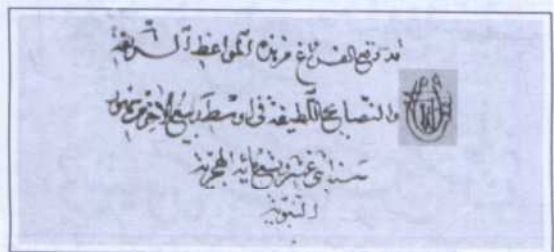 قد وقع الفراغ من هذه المواعظ الشريفة
والنصايح اللطيفة في اوسط ربيع الاخر من شهور
سنة اثنى عشر وتسعمائة الهجرية
النبوية